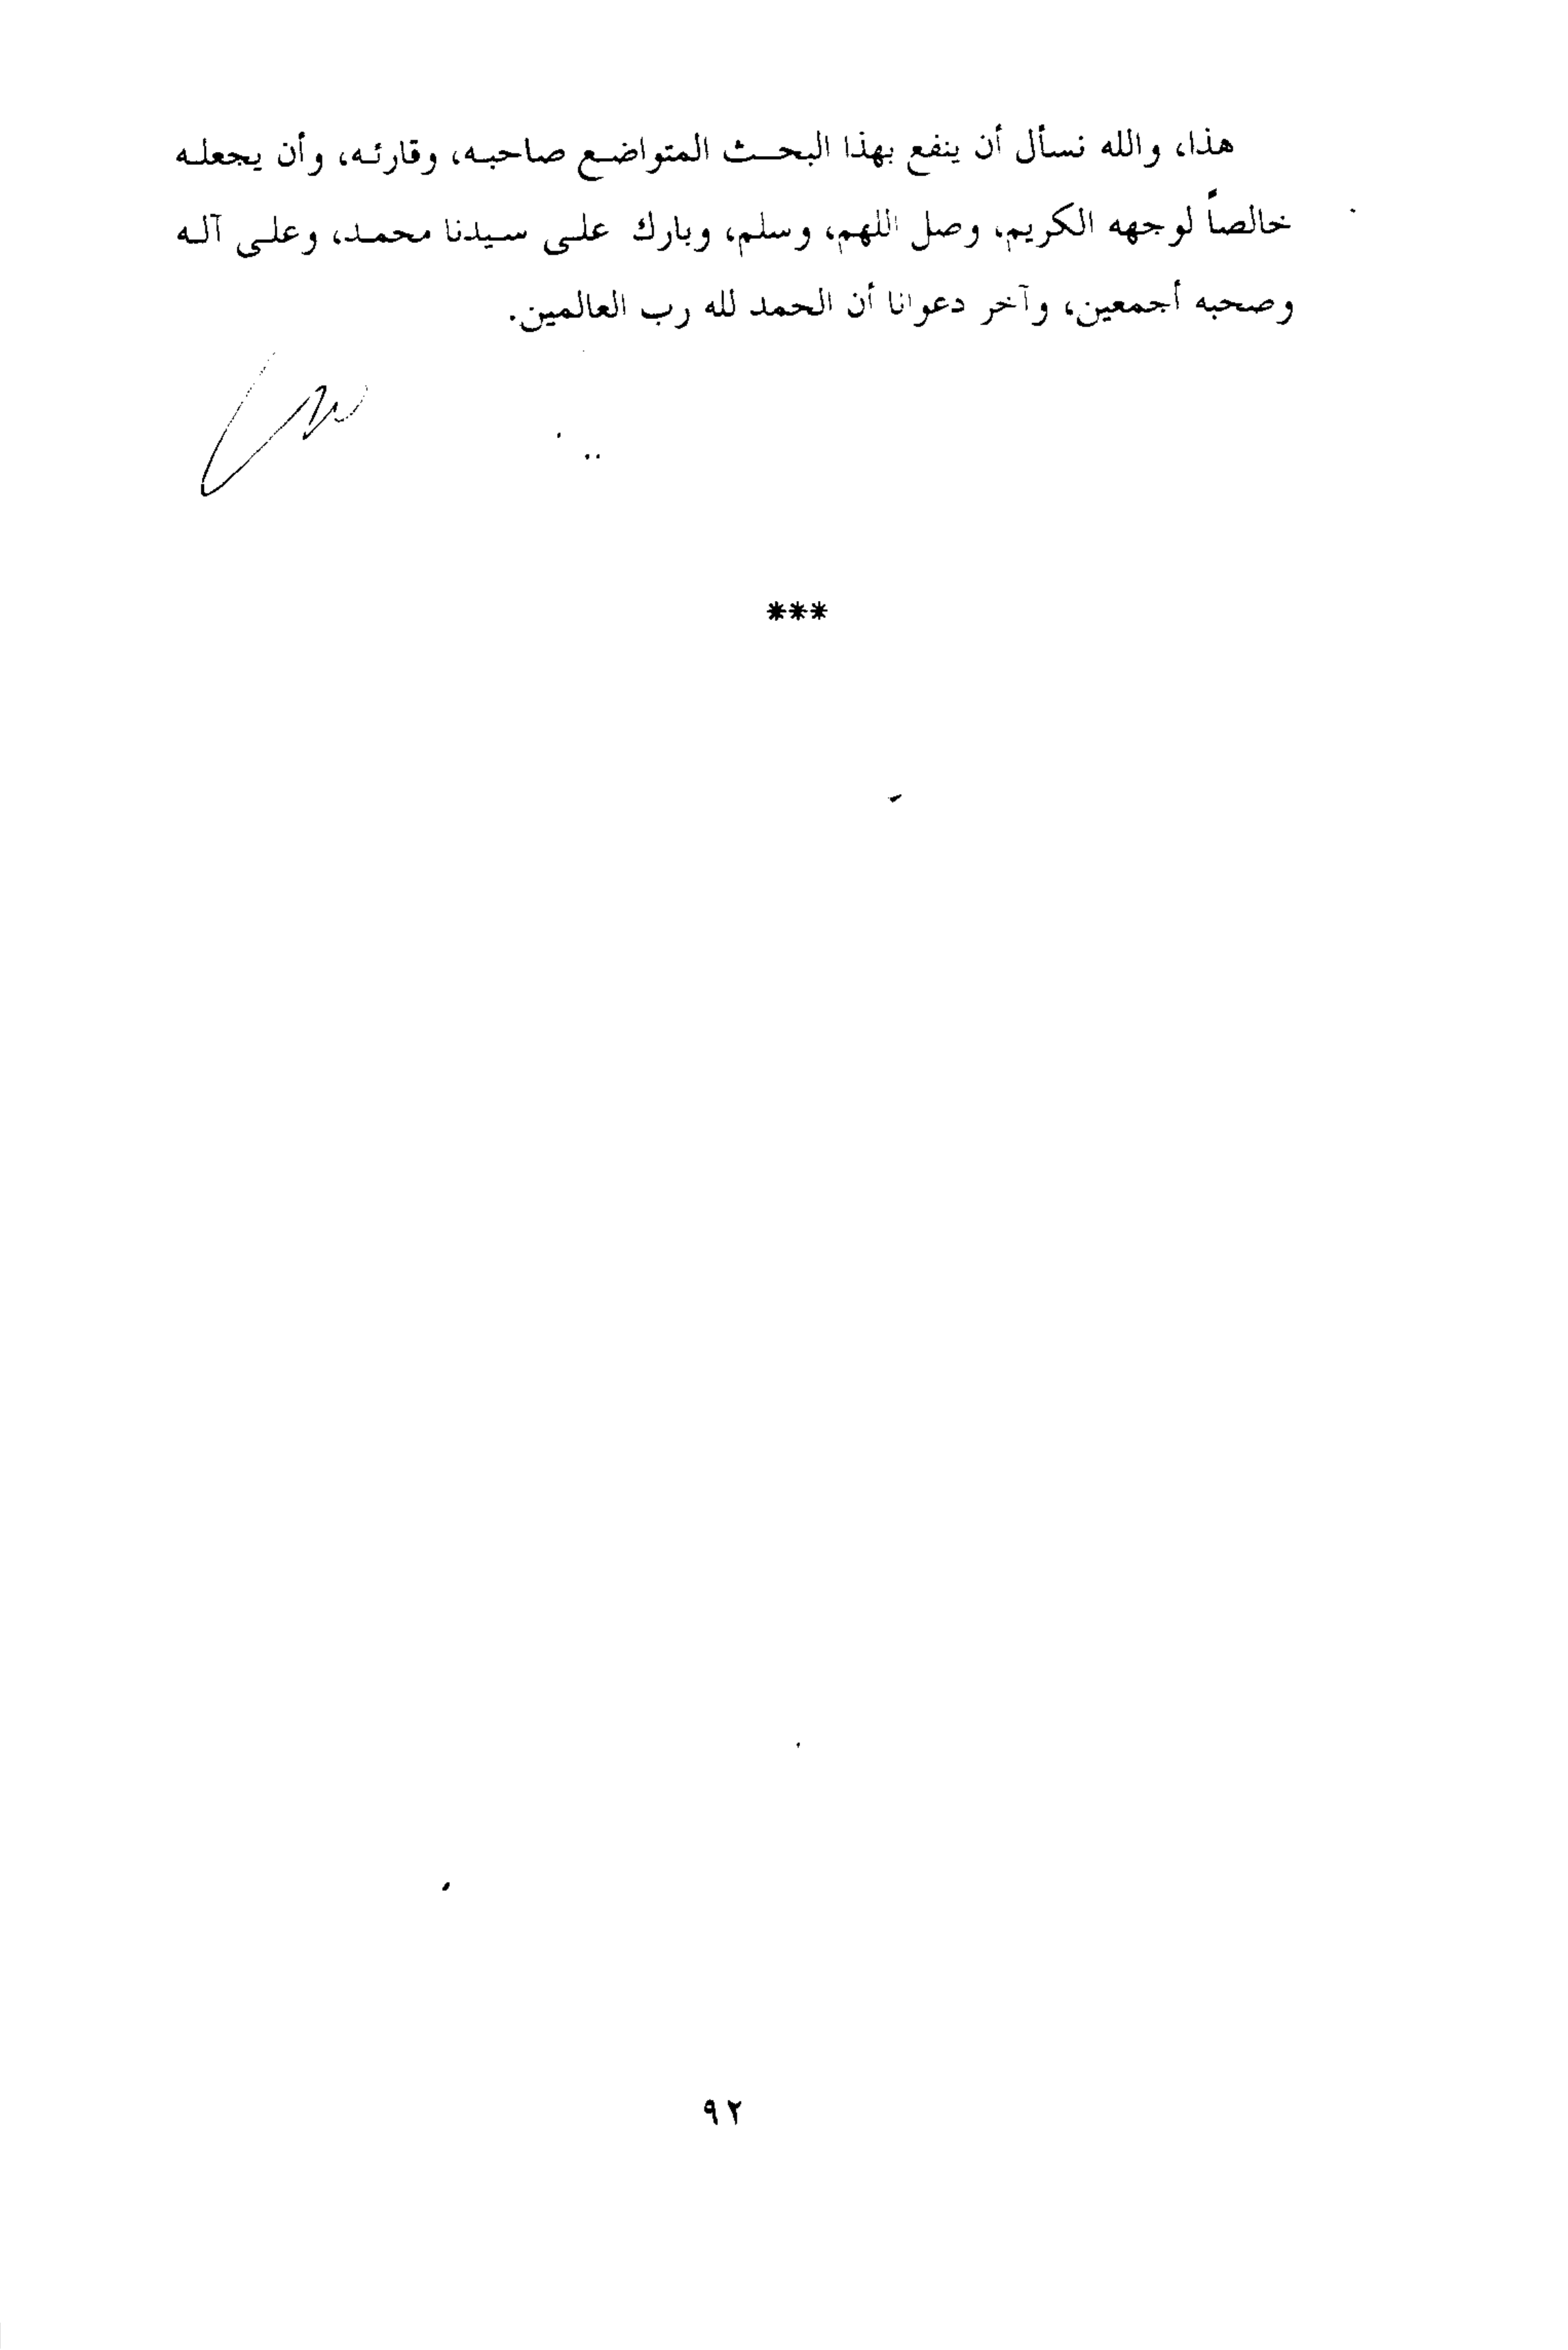 هذا، والله نسأل أن ينفع بهذا البحث المتواضع صاحبه، وقارئه، وأن يجعله
خالصاً لوجهه الكريم، وصل اللهم، وسلم، وبارك على سيدنا محمد، وعلى آله
وصحبه أجمعين، وآخر دعوانا أن الحمد لله رب العالمين.
***
٩٢